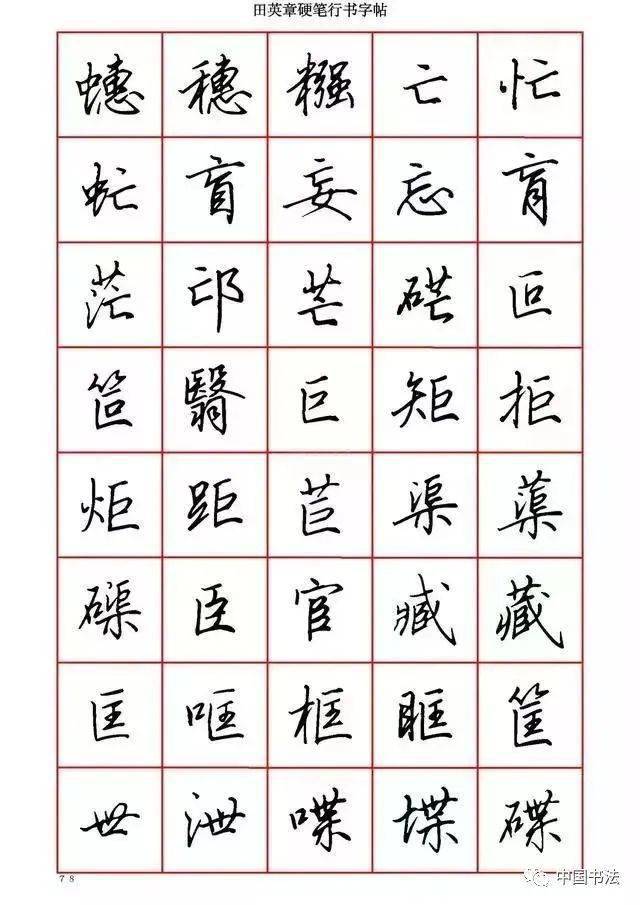 田英章硬笔行书字帖
蟪 穗 糨 亡 忙
虻 盲 妄 忘 肓
茫 邙 芒 硭 叵
笸 翳 巨 矩 拒
炬 距 苣 渠 蕖
磲 臣 官 臧 藏
匡 哐 框 眶 筐
世 泄 喋 堞 碟
78
中国书法